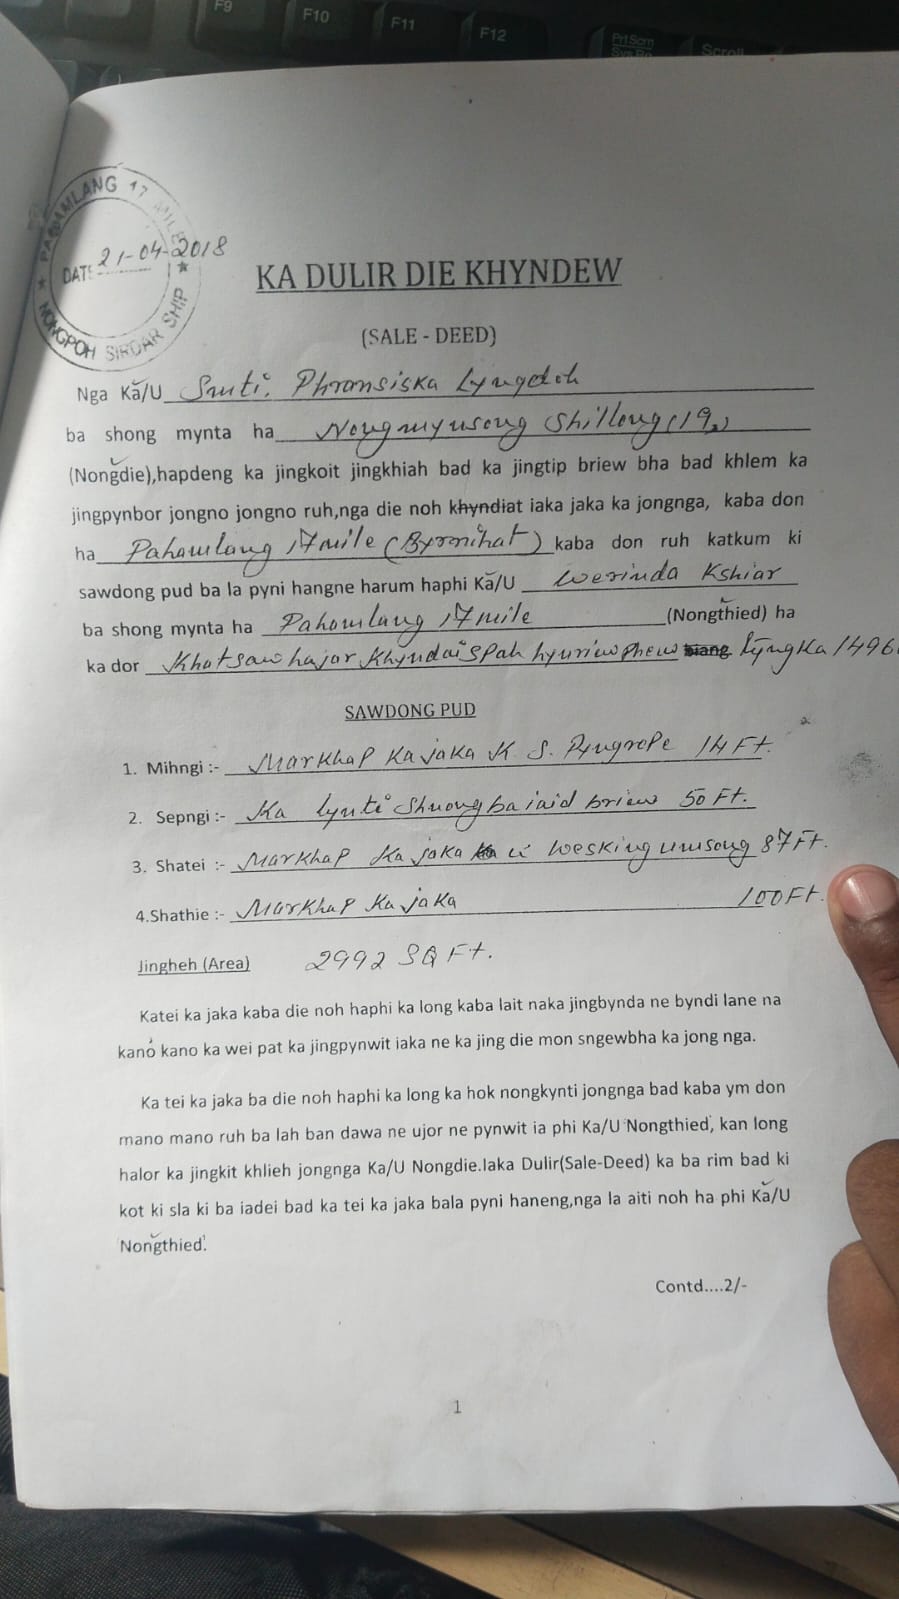 F9 F10 F11 F12 PrtScn Scroll
PAHAMLANG 17 MILE
DATE 21-04-2018
NONGPOH SIRDAR SHIP
KA DULIR DIE KHYNDEW
(SALE - DEED)
Nga Ka/U Smti. Phransiska Lyngdoh
ba shong mynta ha Nongmynsong Shillong (19)
(Nongdie),hapdeng ka jingkoit jingkhiah bad ka jingtip briew bha bad khlem ka
jingpynbor jongno jongno ruh,nga die noh khyndiat iaka jaka ka jongnga, kaba don
ha Pahamlang 17 mile (Byrnihat) kaba don ruh katkum ki
sawdong pud ba la pyni hangne harum haphi Ka/U Werinda Kshiar
ba shong mynta ha Pahamlang 17 mile (Nongthied) ha
ka dor Khatsaw hajar Khyndai spah hynriew phew biang lyngka 1496
SAWDONG PUD
1. Mihngi :- Markhap Ka jaka K. S. Pyngrope 14 Ft.
2. Sepngi :- Ka lynti Shnong ba iaid briew 50 Ft.
3. Shatei :- Markhap Ka jaka ka u Wesking umsong 87 Ft.
4.Shathie :- Markhap Ka jaka 100 Ft.
Jingheh (Area) 2992 SQ Ft.
Katei ka jaka kaba die noh haphi ka long kaba lait naka jingbynda ne byndi lane na
kano kano ka wei pat ka jingpynwit iaka ne ka jing die mon sngewbha ka jong nga.
Ka tei ka jaka ba die noh haphi ka long ka hok nongkynti jongnga bad kaba ym don
mano mano ruh ba lah ban dawa ne ujor ne pynwit ia phi Ka/U Nongthied, kan long
halor ka jingkit khlieh jongnga Ka/U Nongdie.Iaka Dulir(Sale-Deed) ka ba rim bad ki
kot ki sla ki ba iadei bad ka tei ka jaka bala pyni haneng,nga la aiti noh ha phi Ka/U
Nongthied.
Contd....2/-
1